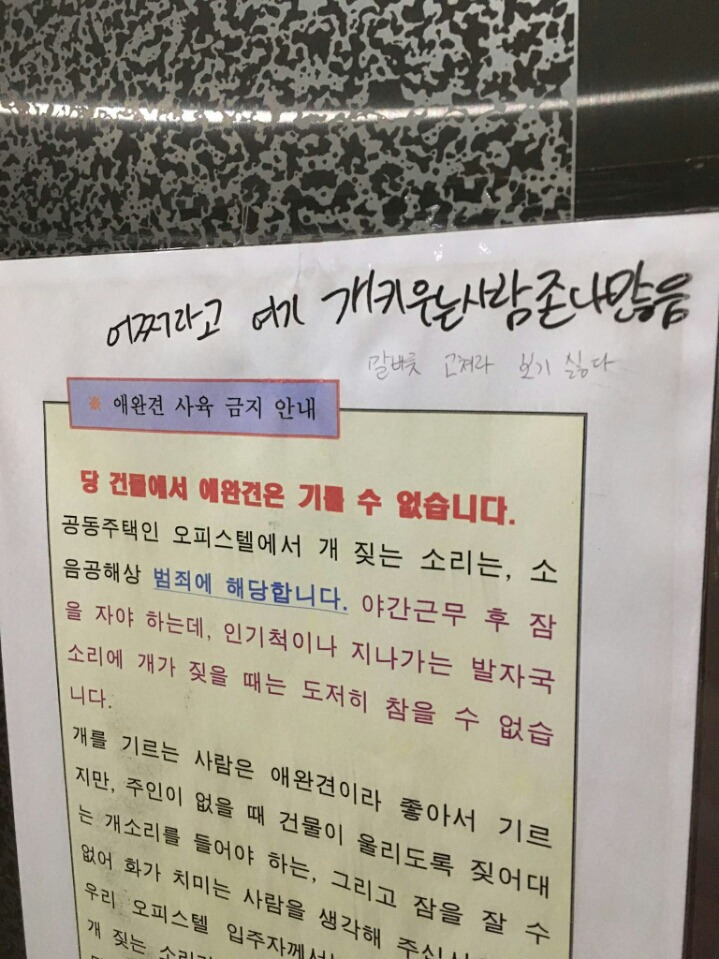 어쩌라고 여기 개키우는사람존나많음
말버릇 고쳐라 보기 싫다
※ 애완견 사육 금지 안내
당 건물에서 애완견은 기를 수 없습니다.
공동주택인 오피스텔에서 개 짖는 소리는, 소
음공해상 범죄에 해당합니다. 야간근무 후 잠
을 자야 하는데, 인기척이나 지나가는 발자국
소리에 개가 짖을 때는 도저히 참을 수 없습
니다.
개를 기르는 사람은 애완견이라 좋아서 기르
지만, 주인이 없을 때 건물이 울리도록 짖어대
는 개소리를 들어야 하는, 그리고 잠을 잘 수
없어 화가 치미는 사람을 생각해
우리 오피스텔 입주자께서
개 짖는